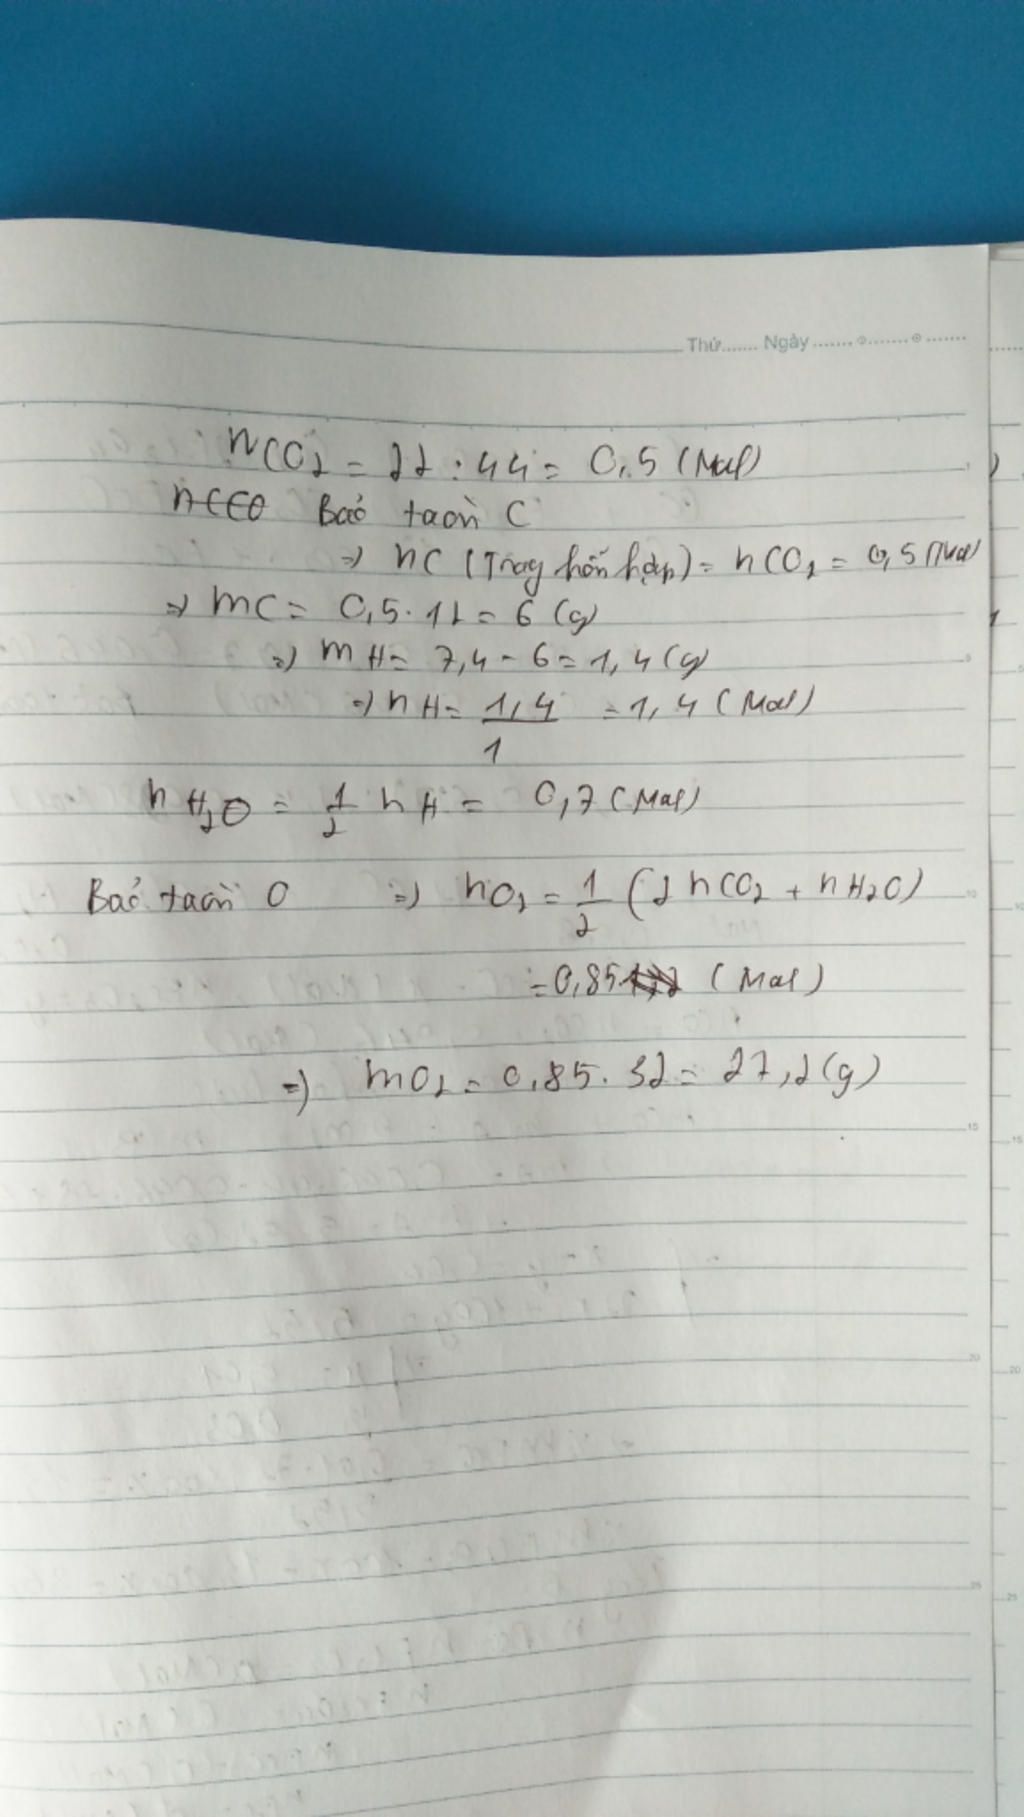 Thứ....... Ngày ....... ........ .......
nCO2 = 22 : 44 = 0,5 (Mol)
Bảo toàn C
=> nC (Trong hỗn hợp) = nCO2 = 0,5 (Mol)
=> mC = 0,5 . 12 = 6 (g)
=> mH = 7,4 - 6 = 1,4 (g)
=> nH = 1,4/1 = 1,4 (Mol)
nH2O = 1/2 nH = 0,7 (Mol)
Bảo toàn O => nO2 = 1/2 (2 nCO2 + nH2O)
= 0,85 (Mol)
=> mO2 = 0,85 . 32 = 27,2 (g)